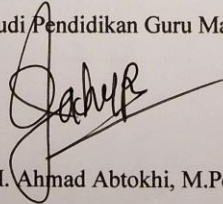 udi Pendidikan Guru Ma
. Ahmad Abtokhi, M.P